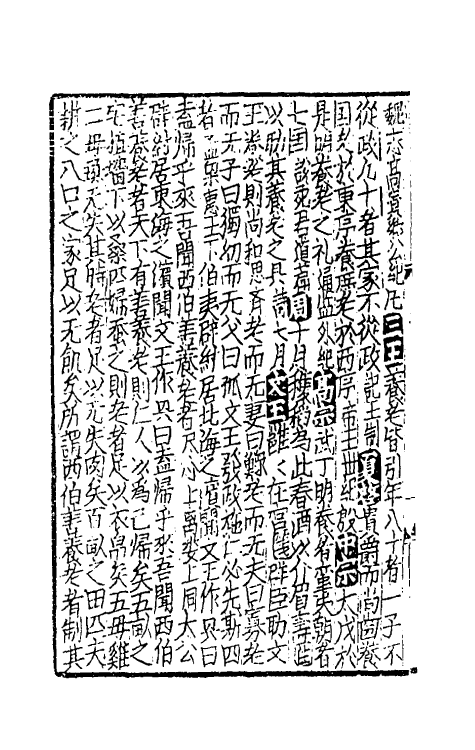 魏志高貴鄉公紀凡三王養老皆引年八十者一子不
從政九十者其家不從政記王制夏貴爵而尚齒養
国老於東序養庶老於西序帝王世紀殷中宗太戊於
是明養老之礼通鑑外紀高宗武丁明養老重朝者
七国說苑君道周十月穫稻為此春酒以介眉壽
以助其養老之具詩七月文王雝〻在宮箋群臣助文
王養老則尚和思齊老而无妻曰鰥老而无夫曰寡老
而无子曰獨幼而无父曰孤文王發政施仁必先斯四
者孟梁惠王下伯夷辟紂居北海之濱聞文王作興曰
盍歸乎來吾聞西伯善養老者尽心上离娄上同太公
辟紂居東海之濱聞文王作興曰盍歸乎來吾聞西伯
善養老者天下有善養老則仁人以為己歸矣五畝之
宅樹墻下以桑匹婦蚕之則老者足以衣帛矣五母雞
二母彘无失其時老者足以无失肉矣百畝之田匹夫
耕之八口之家足以无飢矣所謂西伯善養老者制其